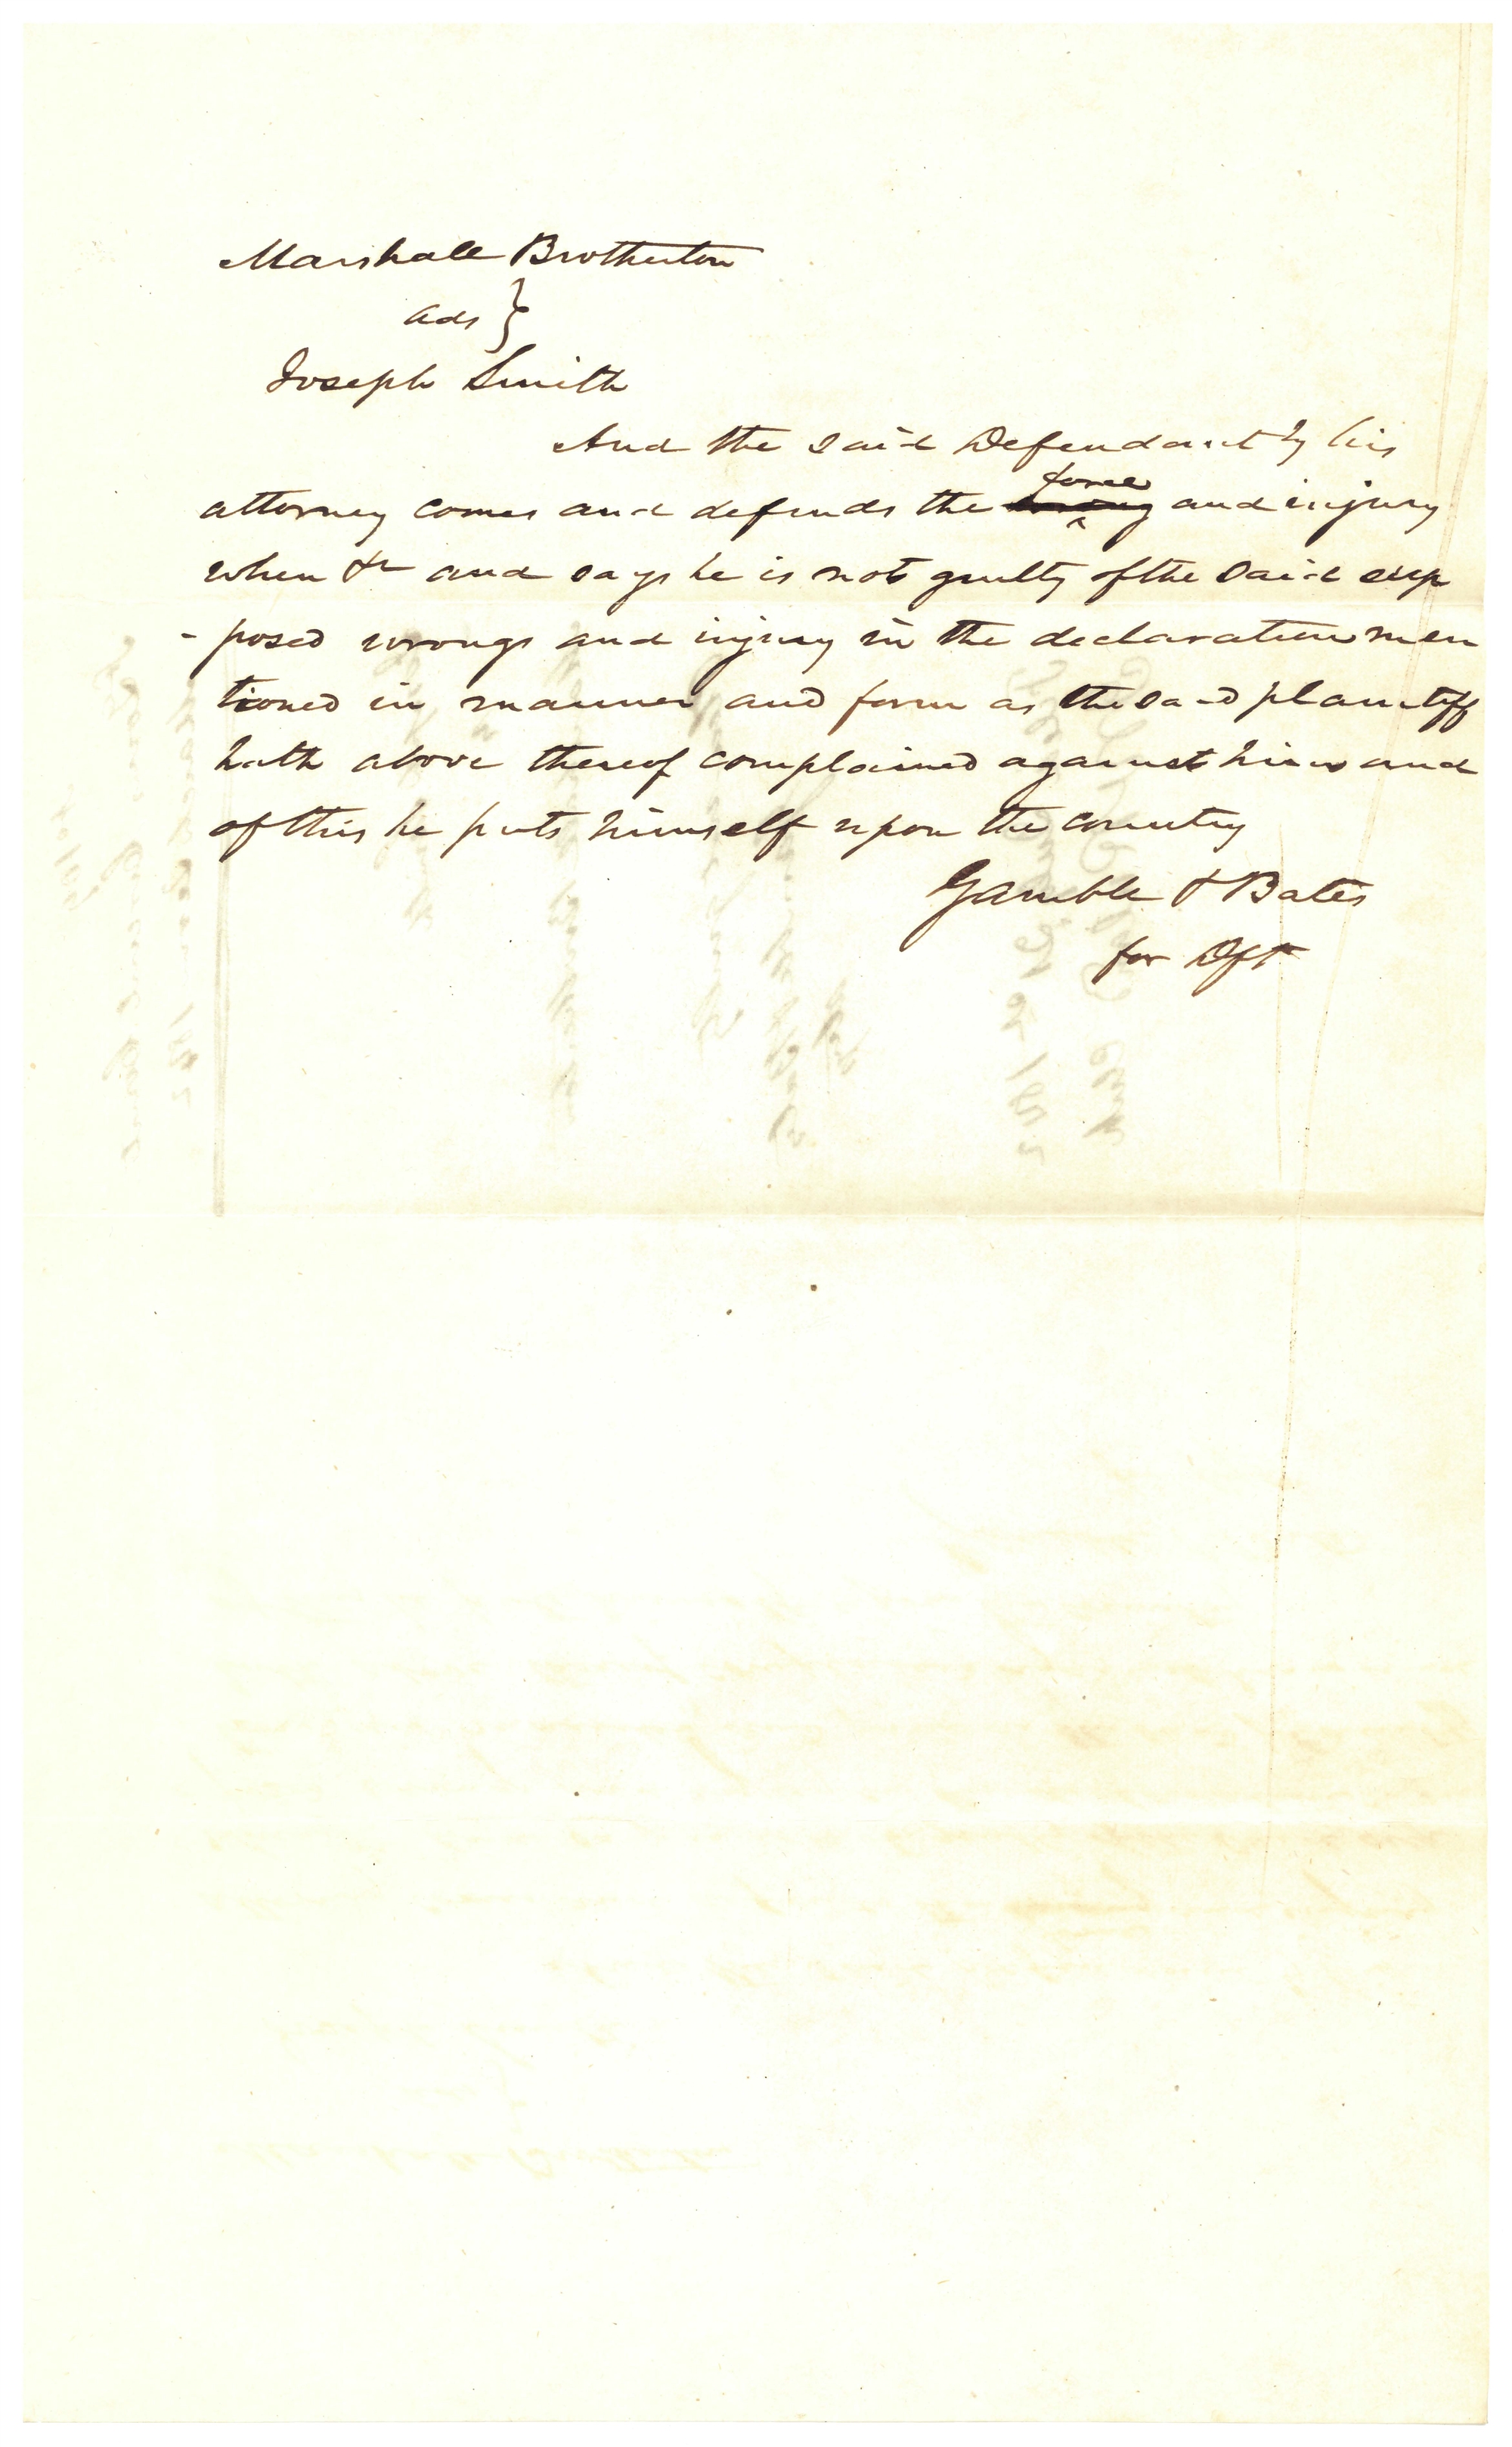 Marshall Brotherton
ads }
Joseph Smith
And the said Defendant by his
attorney comes and defends the wrong force and injury
when &c and says he is not guilty of the said sup
- posed wrongs and injury in the declaration men
tioned in manner and form as the said plaintiff
hath above thereof complained against him and
of this he puts himself upon the country
Gamble & Bates
for Dft